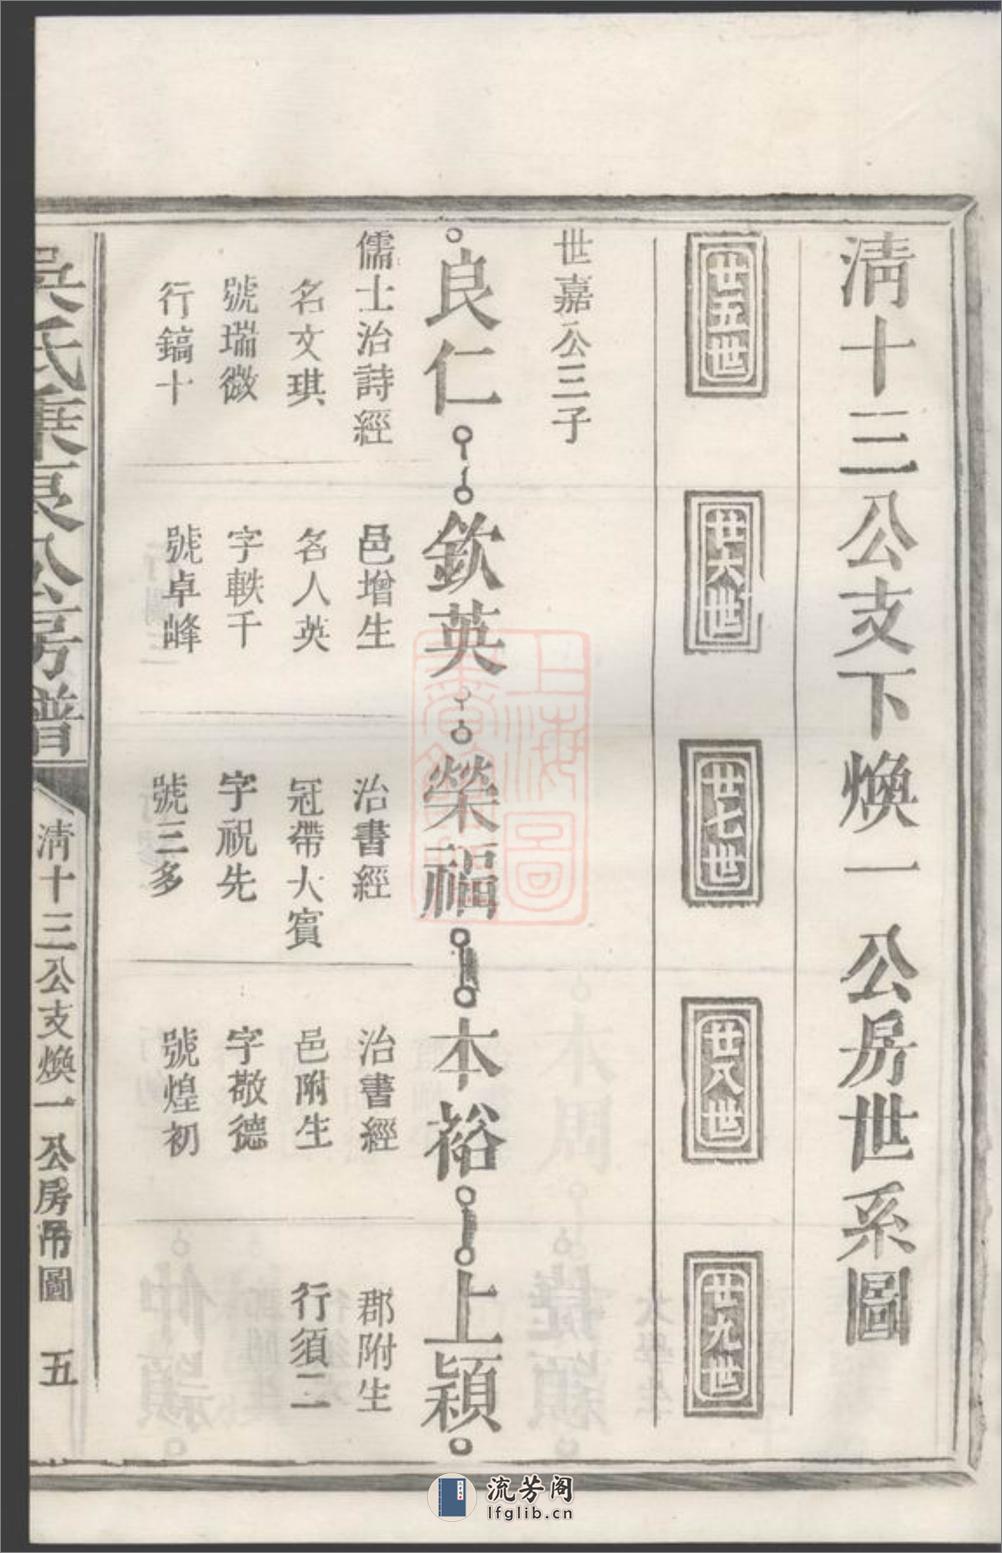 清十三公支下煥一公房世系圖
廿五世
廿六世
廿七世
廿八世
廿九世
世嘉公三子
良仁
儒士治詩經
名文琪
號瑞微
行鎬十
欽英
邑增生
名人英
字軼千
號卓峰
榮福
治書經
冠帶大賓
字祝先
號三多
本裕
治書經
邑附生
字敬德
號煌初
上穎
郡附生
行須二
吳氏重泉公房譜
清十三公支煥一公房吊圖
五
上海圖
流芳阁
lfglib.cn